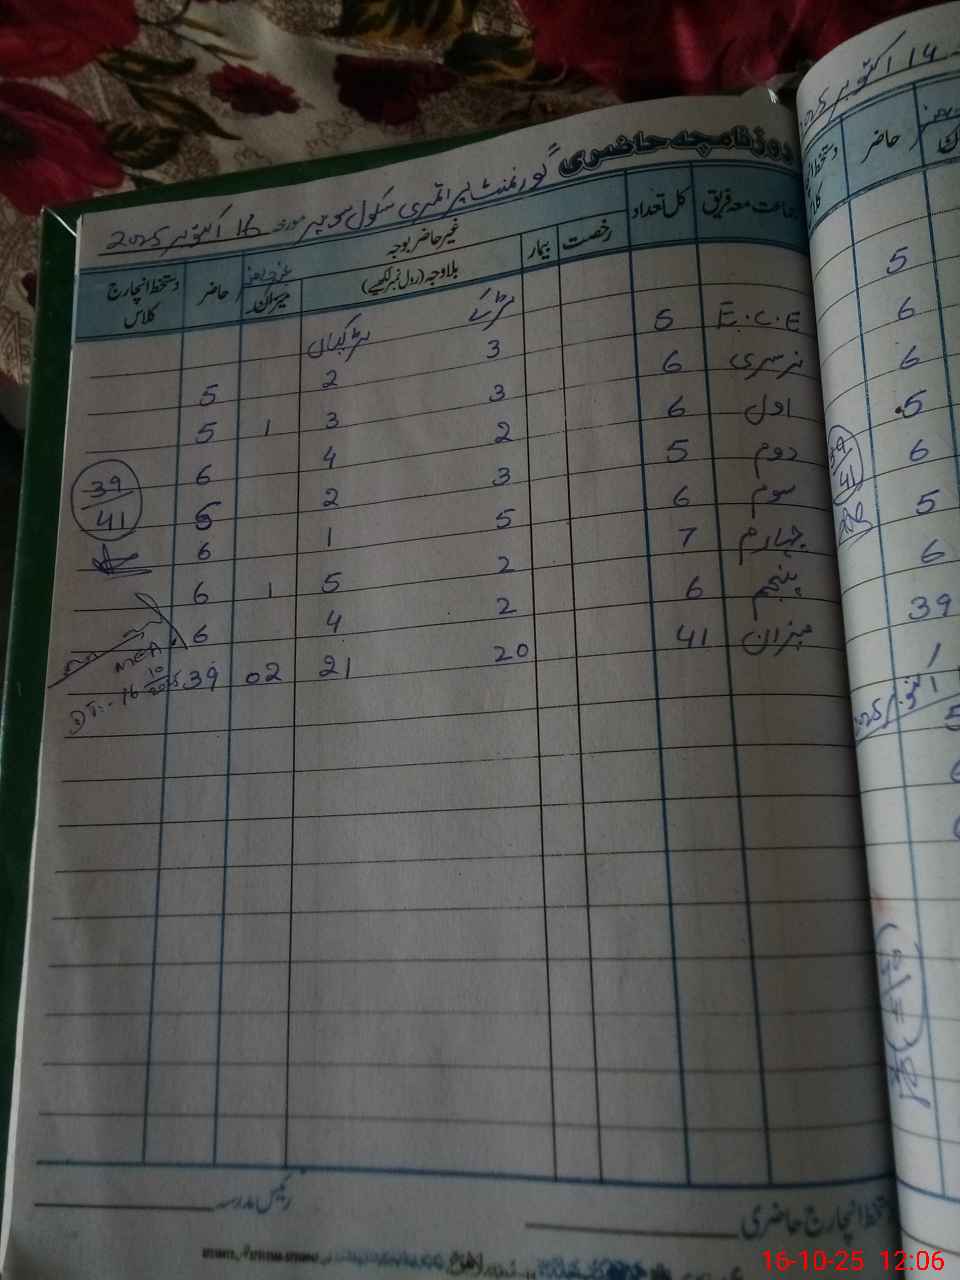 روزنامچہ حاضری
گورنمنٹ پرائمری سکول مورخہ 16 اکتوبر 2025
جماعت معہ فریق کل تعداد رخصت بیمار غیر حاضر بوجہ حاضر دستخط انچارج کلاس
بلاوجہ (رول نمبر لکھیے) میزان
لڑکے لڑکیاں
E.C.E 5 3 2 5
نرسری 6 3 3 1 5
اول 6 2 4 6
دوم 5 3 2 5
سوم 6 5 1 6
چہارم 7 2 5 1 6
پنجم 6 2 4 6
میزان 41 20 21 02 39
39
41
MEA
DT:- 16/10/2025
دستخط انچارج حاضری
رئیس مدرسہ
14 اکتوبر 2025
حاضر
دستخط انچارج
5
6
6
5
39
41
6
5
6
39
16-10-25 12:06